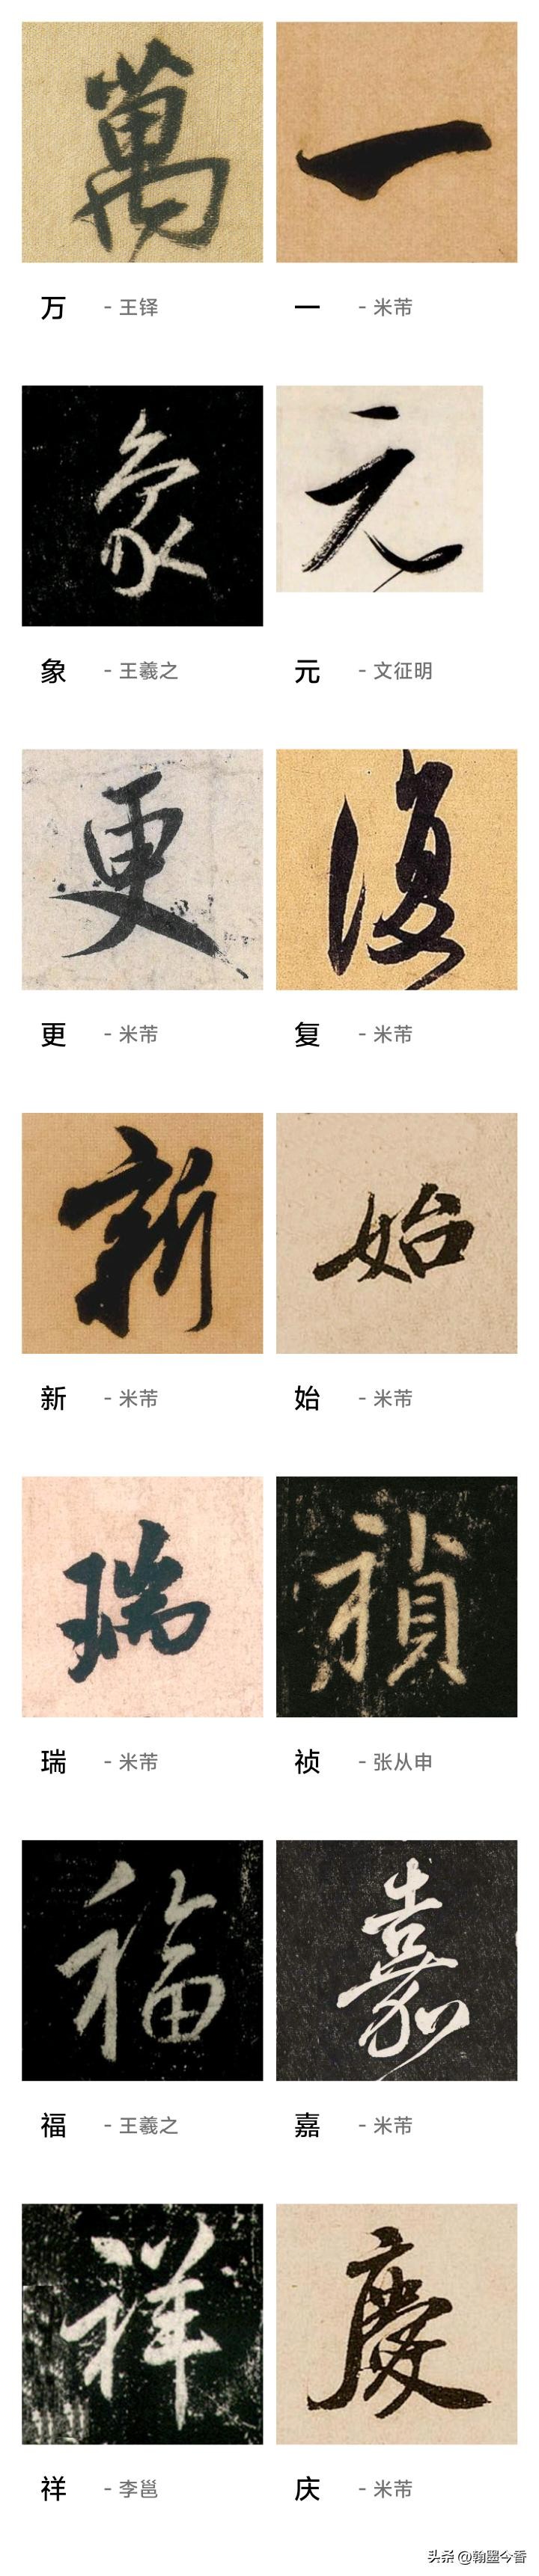 萬 一
万 - 王铎 一 - 米芾
象 元
象 - 王羲之 元 - 文征明
更 復
更 - 米芾 复 - 米芾
新 始
新 - 米芾 始 - 米芾
瑞 禎
瑞 - 米芾 祯 - 张从申
福 嘉
福 - 王羲之 嘉 - 米芾
祥 慶
祥 - 李邕 庆 - 米芾
头条 @翰墨今香